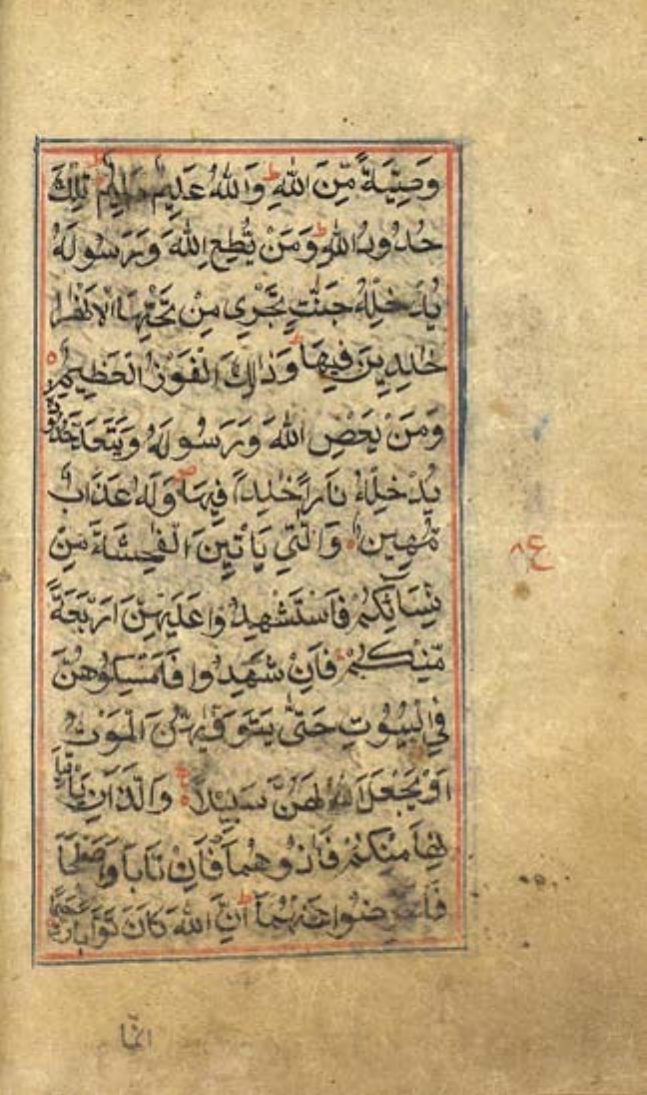 وَصِيَّةً مِّنَ اللّٰهِ ط وَاللّٰهُ عَلِيمٌ حَلِيمٌ ط تِلْكَ
حُدُودُ اللّٰهِ ط وَمَنْ يُّطِعِ اللّٰهَ وَرَسُولَهُ
يُدْخِلْهُ جَنّٰتٍ تَجْرِي مِنْ تَحْتِهَا الْاَنْهٰرُ
خٰلِدِينَ فِيهَا ط وَذٰلِكَ الْفَوْزُ الْعَظِيمُ ه
وَمَنْ يَعْصِ اللّٰهَ وَرَسُولَهُ وَيَتَعَدَّ حُدُودَهُ
يُدْخِلْهُ نَارًا خٰلِدًا فِيهَا ص وَلَهُ عَذَابٌ
مُّهِينٌ وَالّٰتِي يَاْتِينَ الْفٰحِشَةَ مِنْ
نِسَآئِكُمْ فَاسْتَشْهِدُوا عَلَيْهِنَّ اَرْبَعَةً
مِّنْكُمْ فَاِنْ شَهِدُوا فَاَمْسِكُوهُنَّ
فِي الْبُيُوتِ حَتّٰى يَتَوَفّٰىهُنَّ الْمَوْتُ
اَوْ يَجْعَلَ اللّٰهُ لَهُنَّ سَبِيلًا وَالَّذَانِ يَاْتِيٰ
نِهَا مِنْكُمْ فَاٰذُوهُمَا فَاِنْ تَابَا وَاَصْلَحَا
فَاَعْرِضُوا عَنْهُمَا ط اِنَّ اللّٰهَ كَانَ تَوَّابًا رَحِيمًا
ع ٨
انّما